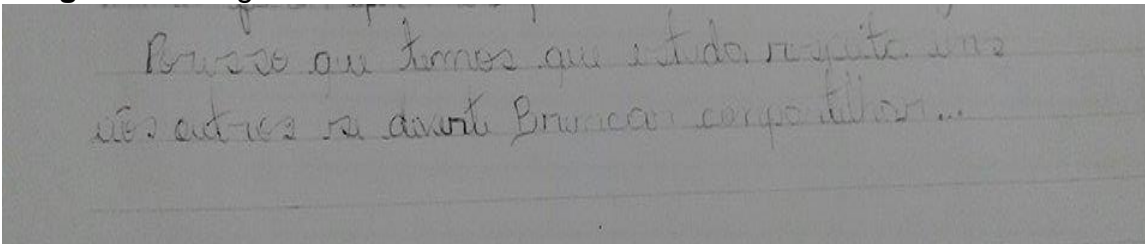 Porisso que temos que estuda respita uns
aõs outros se divirti Bruncar compatilhar...